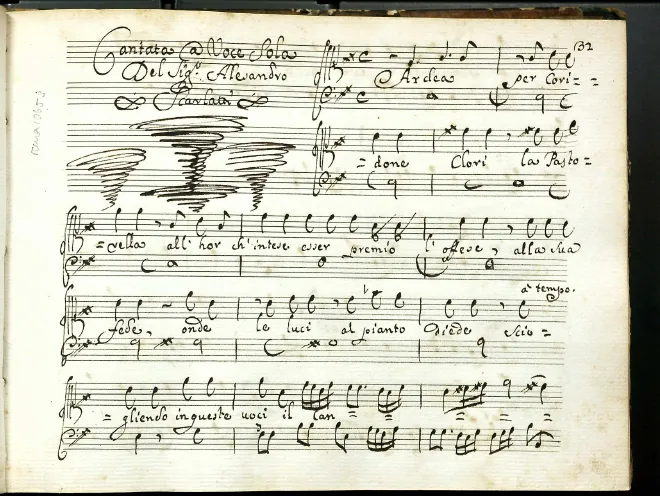 Cantata a Voce Sola
Del Sig.r Alesandro
Scarlatti
132
Ardea per Cori= =
= done Clori la Pasto=
= rella all' hor ch' intese esser premio l' offese, alla sua
a tempo.
fede, onde le luci al pianto diede scio=
= gliendo in queste voci il lan = = = =